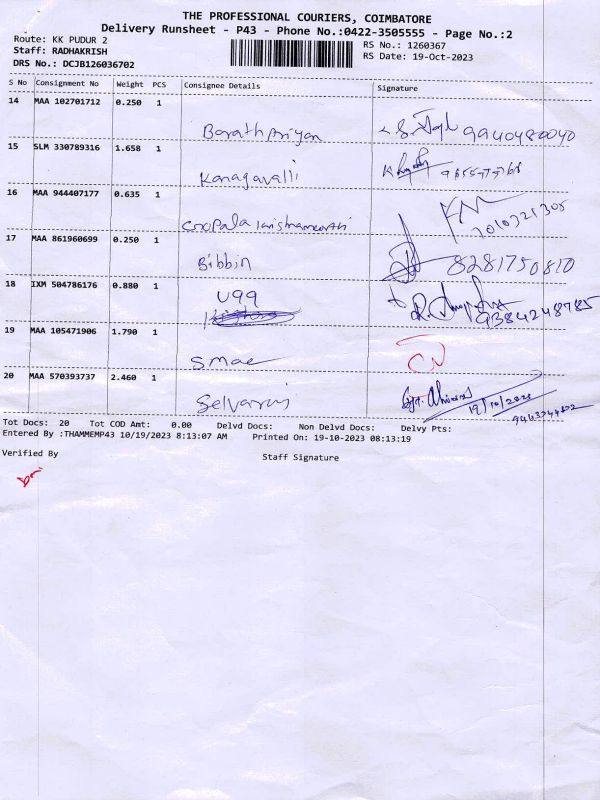 THE PROFESSIONAL COURIERS, COIMBATORE
Delivery Runsheet - P43 - Phone No.:0422-3505555 - Page No.:2
Route: KK PUDUR 2
RS No.: 1260367
Staff: RADHAKRISH
RS Date: 19-Oct-2023
DRS No.: DCJB126036702
S No Consignment No Weight PCS Consignee Details Signature
14 MAA 102701712 0.250 1
Barath Priyan 9940480040
15 SLM 330789316 1.658 1
Kanagavalli
16 MAA 944407177 0.635 1
Gopala krishnamoorthi 7010321308
17 MAA 861960699 0.250 1
Bibbin 8281750810
18 IXM 504786176 0.880 1
U99 9384248785
19 MAA 105471906 1.790 1
Smae
20 MAA 570393737 2.460 1
Selvaraj 19/10/2023
Tot Docs: 20 Tot COD Amt: 0.00 Delvd Docs: Non Delvd Docs: Delvy Pts:
Entered By :THAMMEMP43 10/19/2023 8:13:07 AM Printed On: 19-10-2023 08:13:19
Verified By Staff Signature